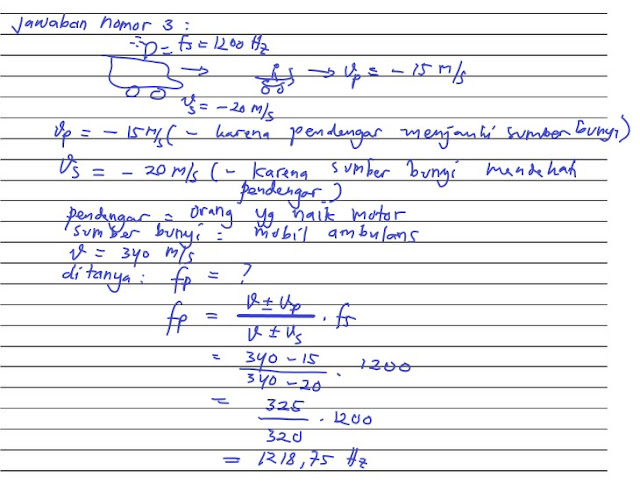 Jawaban nomor 3 :
fs = 1200 Hz
→ → vp = - 15 m/s
vs = - 20 m/s
vp = - 15 m/s ( - karena pendengar menjauhi sumber bunyi)
vs = - 20 m/s ( - karena sumber bunyi mendekati
pendengar)
pendengar = orang yg naik motor
sumber bunyi = mobil ambulans
v = 340 m/s
ditanya : fp = ?
fp = v ± vp / v ± vs . fs
= 340 - 15 / 340 - 20 . 1200
= 325 / 320 . 1200
= 1218,75 Hz